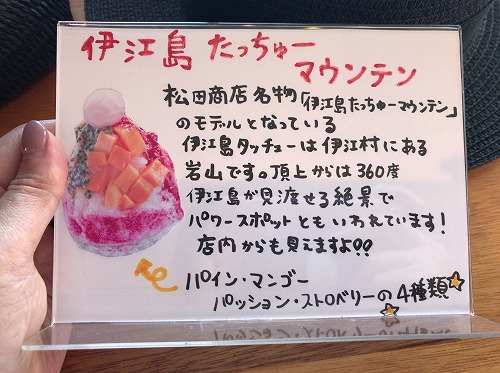 伊江島 たっちゅー
マウンテン
松田商店名物「伊江島たっちゅーマウンテン」
のモデルとなっている
伊江島タッチューは伊江村にある
岩山です。頂上からは360度
伊江島が見渡せる絶景で
パワースポットともいわれています!
店内からも見えますよ!!
パイン・マンゴー
パッション・ストロベリーの4種類